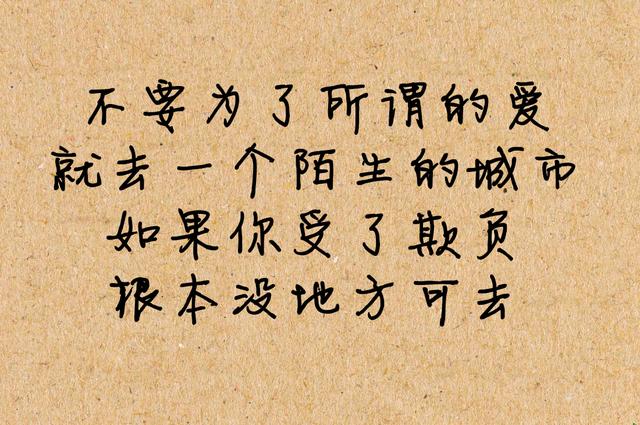 不要为了所谓的爱
就去一个陌生的城市
如果你受了欺负
根本没地方可去